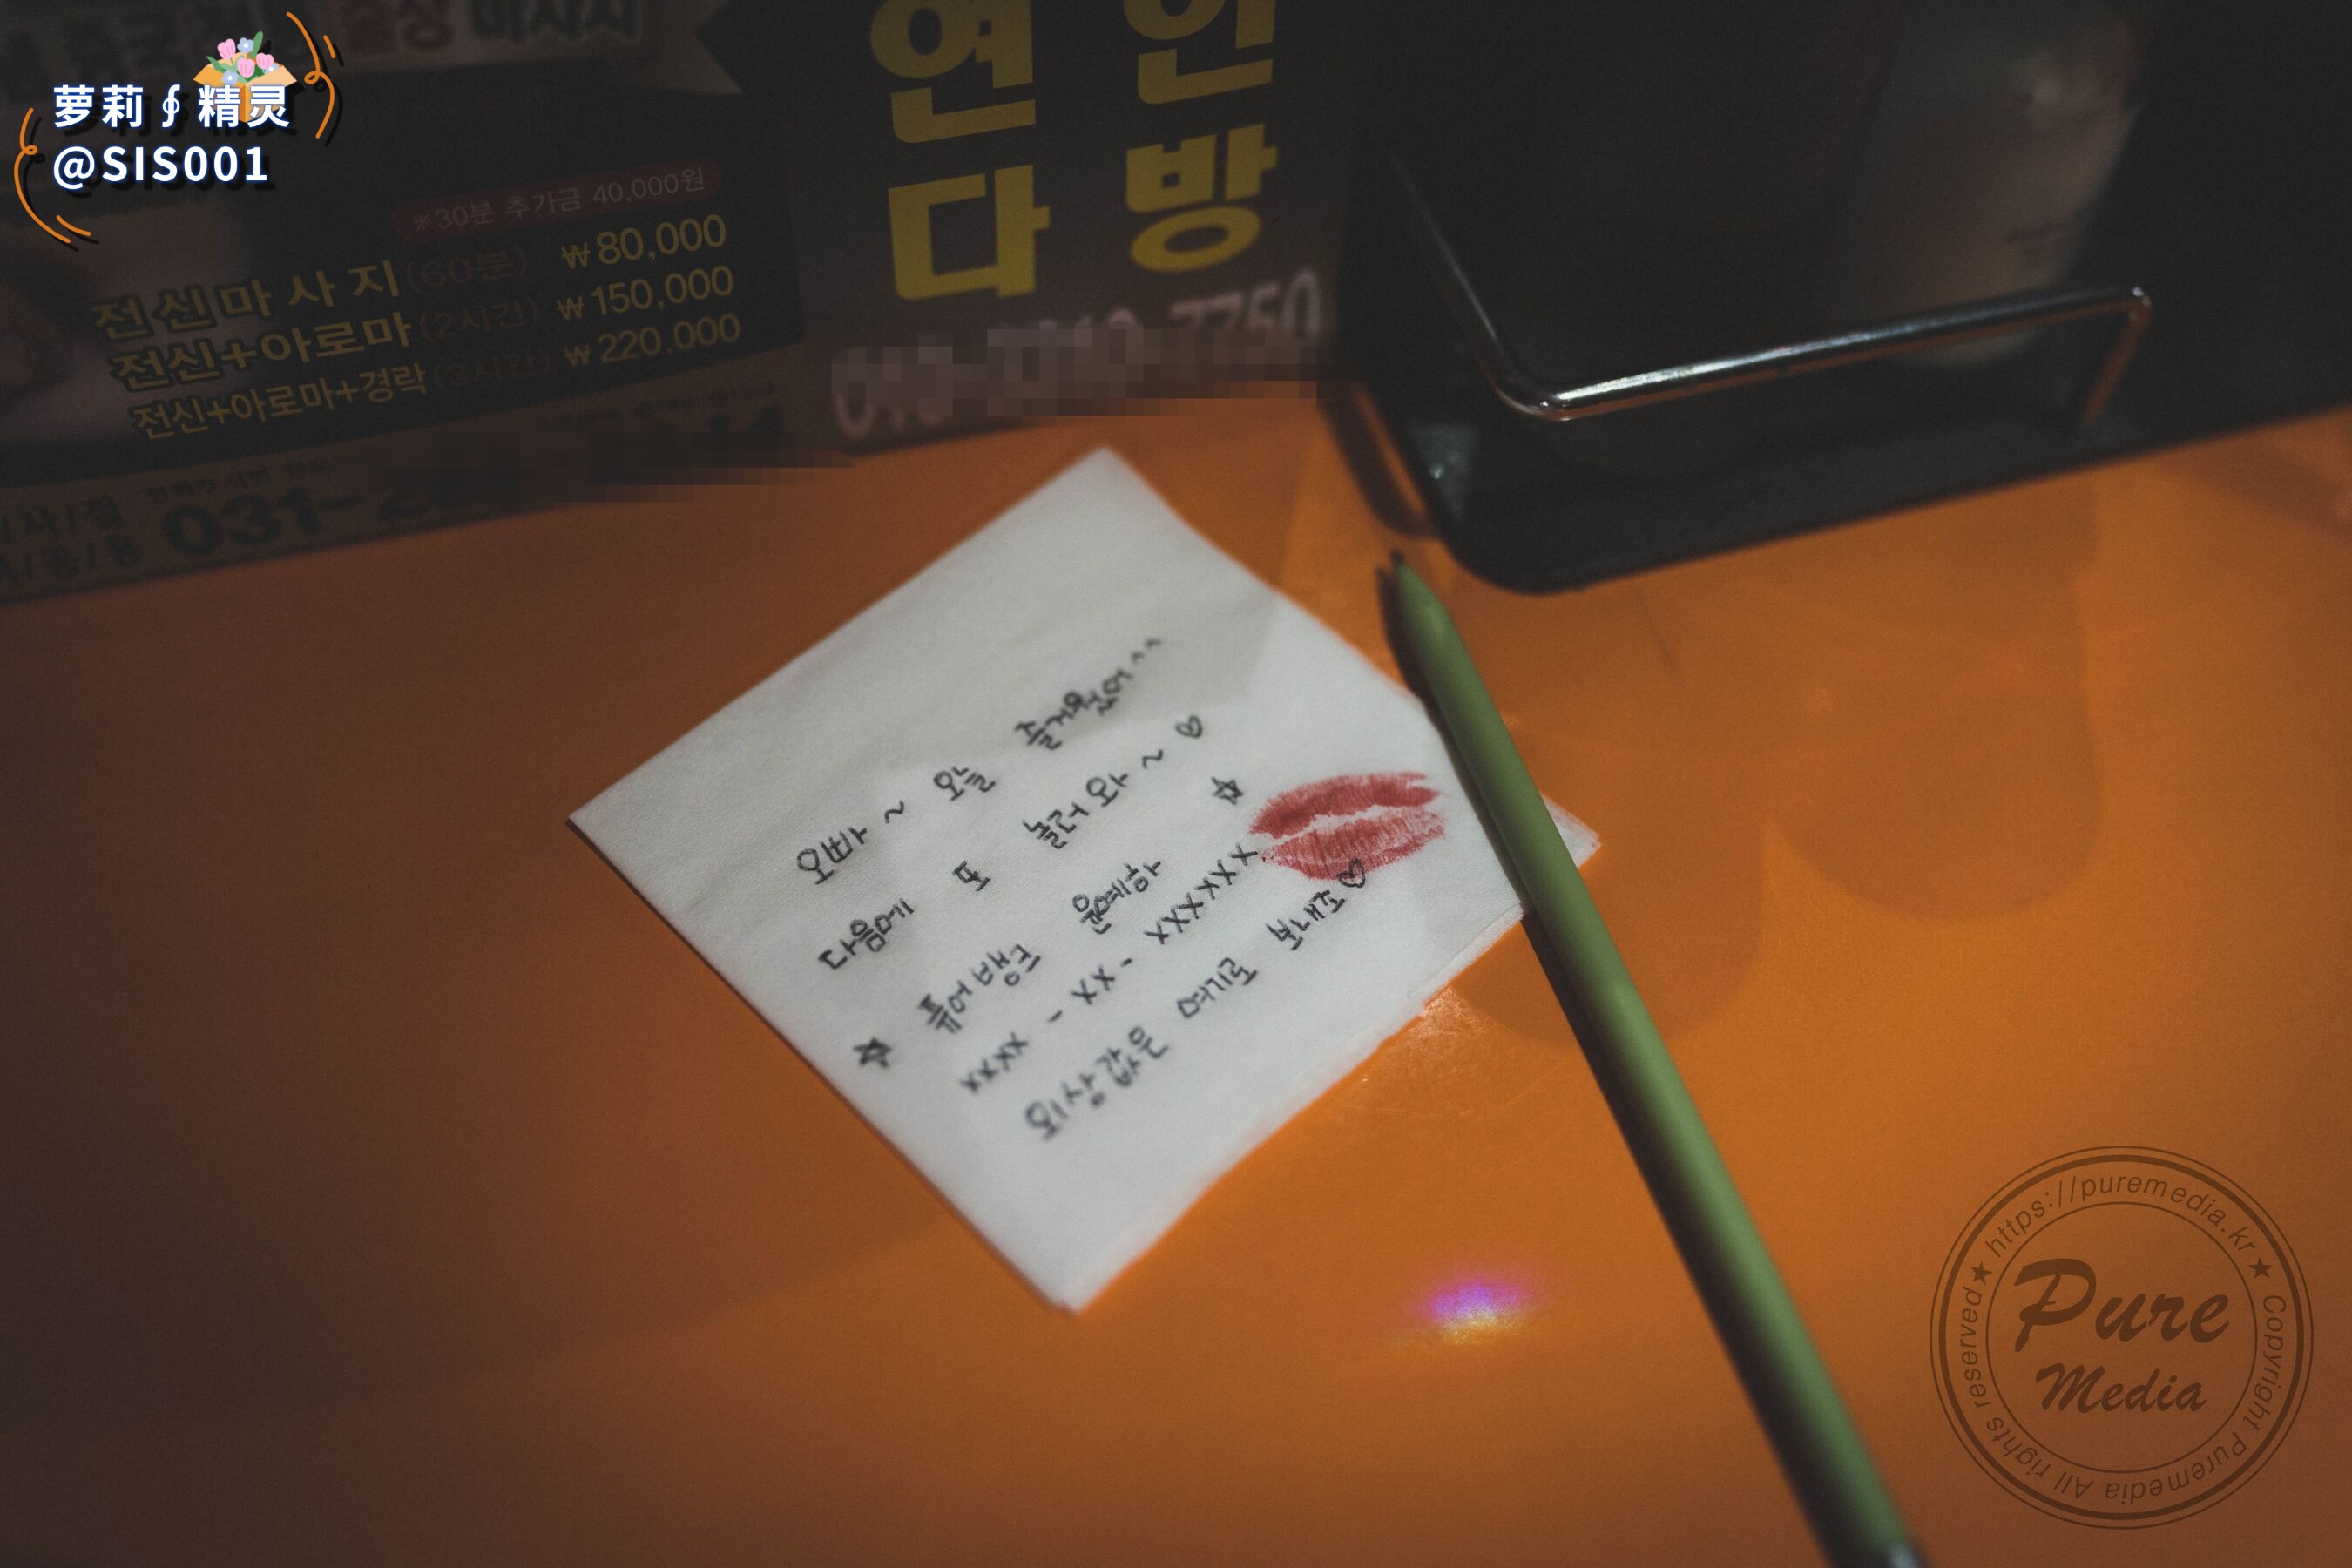 萝莉∮精灵
@SIS001
※30분 추가금 40,000원
전신마사지(60분) ₩80,000
전신+아로마(2시간) ₩150,000
전신+아로마+경락(3시간) ₩220,000
031-
연인
다방
오빠~ 오늘 즐거웠어^^
다음에 또 놀러와~♡
☆ 퓨어뱅크 윤예하 ☆
xxxx-xx-xxxxxxx
외상값은 여기로 보내죠♡
https://puremedia.kr ★ Copyright Puremedia All rights reserved ★
Pure
Media